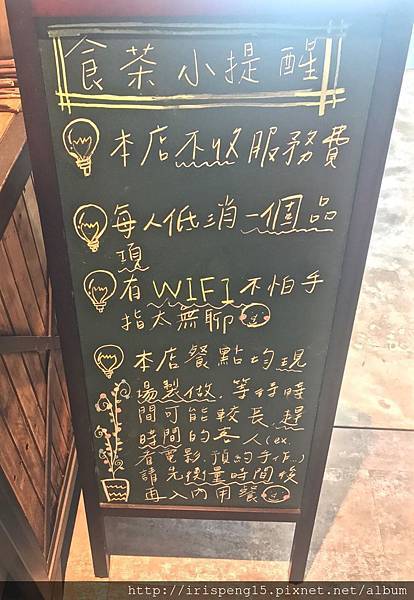 食茶小提醒
本店不收服務費
每人低消一個品
項
有WIFI不怕手
指太無聊
本店餐點均現
場製做,等待時
間可能較長,趕
時間的客人(ex.
看電影.預約手作...)
請先衡量時間後
再入內用餐
http://irispeng15.pixnet.net/album